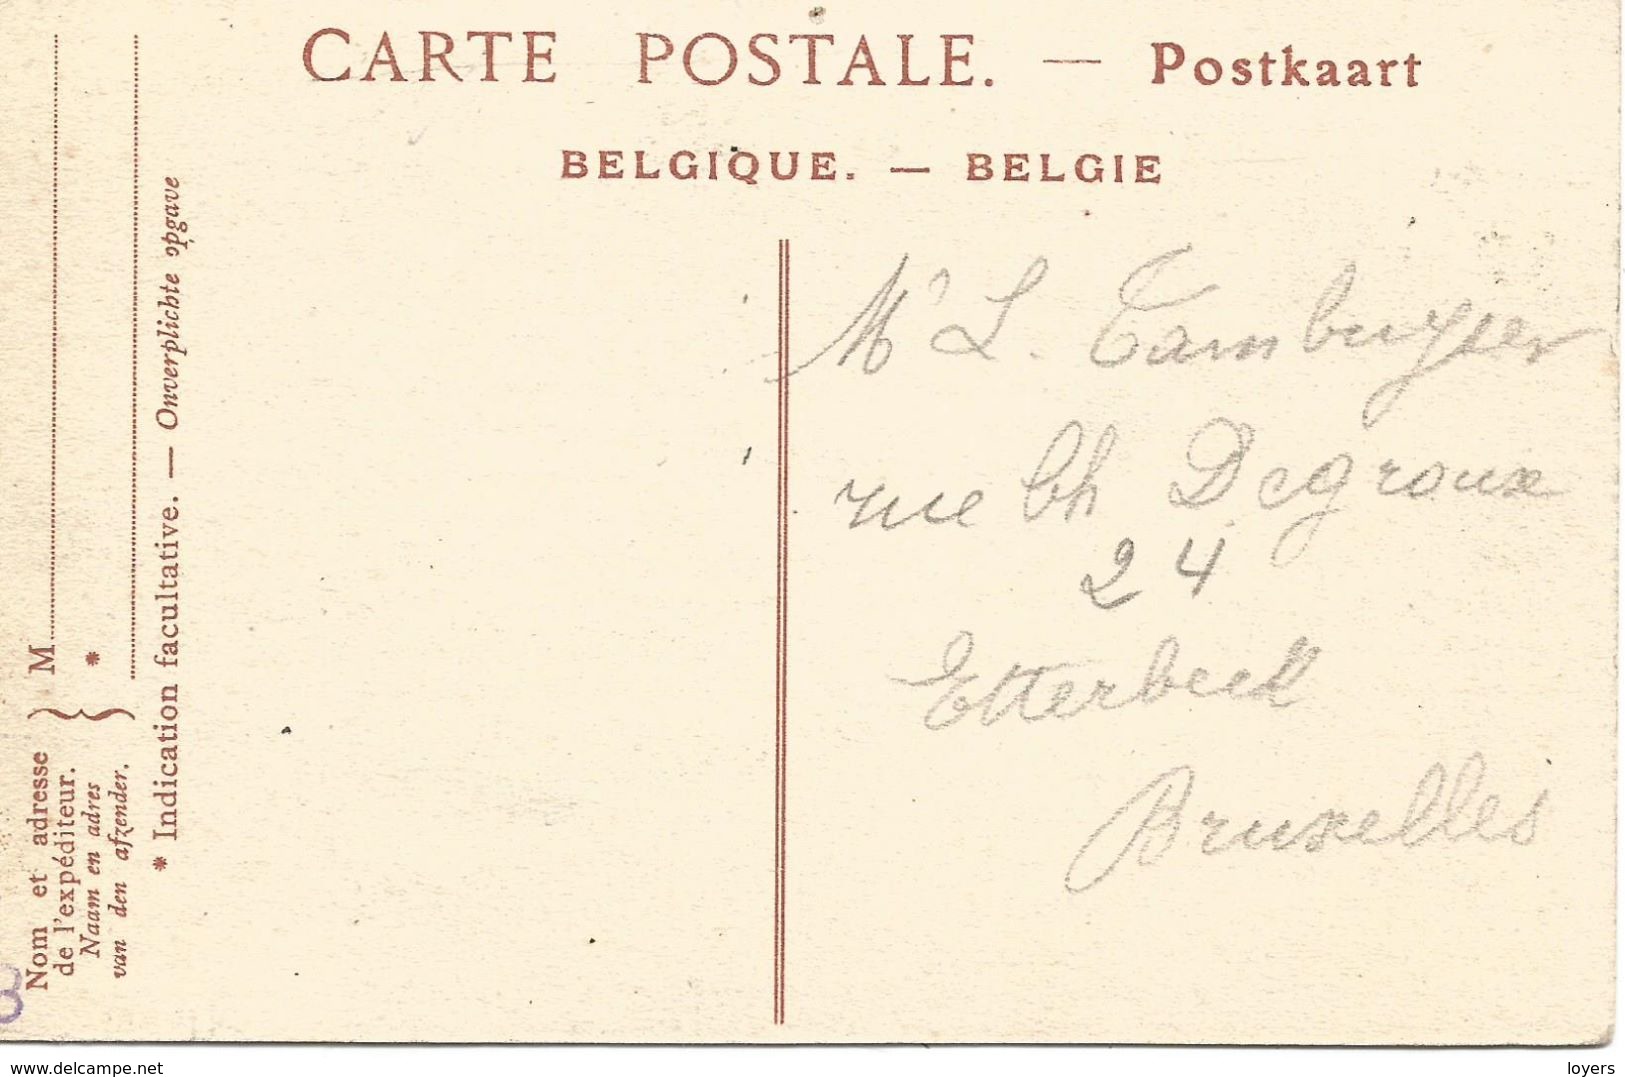 CARTE POSTALE. — Postkaart
BELGIQUE. — BELGIE
Nom et adresse
de l'expéditeur.
Naam en adres
van den afzender.
M
*
* Indication facultative. — Onverplichte opgave
Mr L. Tambuyser
rue Ch Degroux
24
Etterbeek
Bruxelles
8
www.delcampe.net
loyers